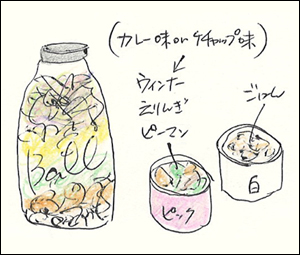 (カレー味orケチャップ味)
ウィンナー
えりんぎ
ピーマン
ごはん
Ball
ピンク
白